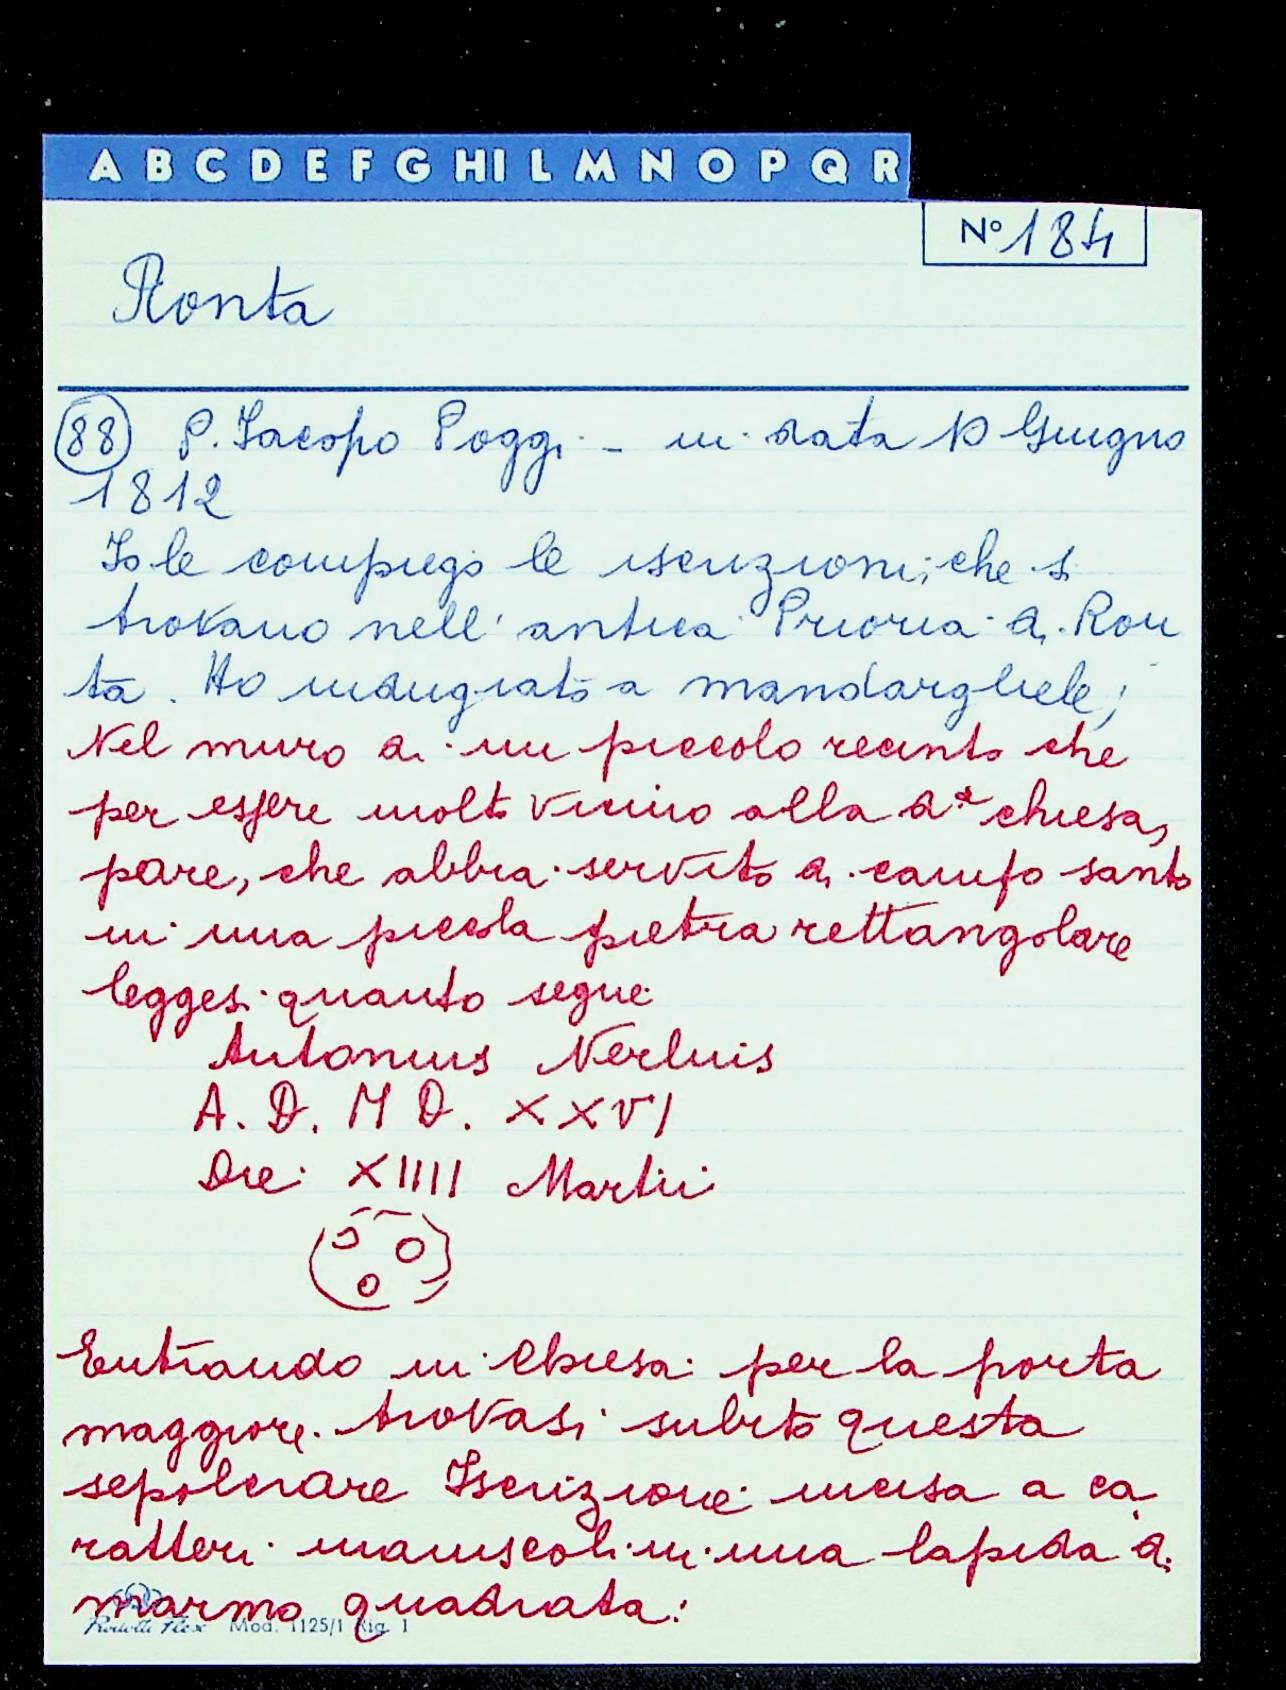 A B C D E F G H I L M N O P Q R
N° 184
Ronta
88 P. Iacopo Poggi - in data 10 Giugno
1812
Io le compiego le iscrizioni, che si
trovano nell'antica Prioria di Ron
ta. Ho indugiato a mandargliele;
Nel muro di un piccolo recinto che
per essere molto vicino alla da chiesa,
pare, che abbia servito di campo santo
in una piccola pietra rettangolare
leggesi quanto segue
Antonius Nerluis
A. D. M D. XXVI
Die XIIII Martii
Entrando in Chiesa per la porta
maggiore trovasi subito questa
sepolcrare Iscrizione incisa a ca
ratteri maiuscoli in una lapida di
marmo quadrata:
Mod. 1125/1 Rig. 1